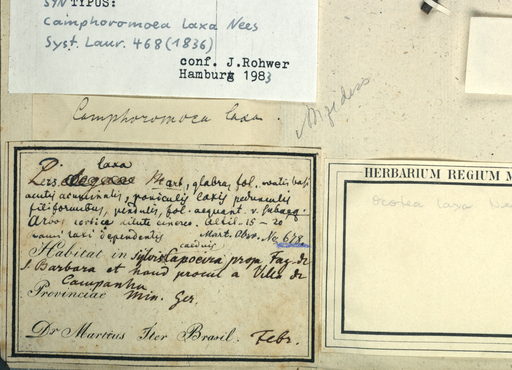 SYNTYPUS:
Camphoromoea laxa Nees
Syst. Laur. 468 (1836)
conf. J.Rohwer
Hamburg 1983
Camphoromoea laxa.
laxa
Pers. Mart, glabra, fol. ovatis basi
acutis acuminatis, paniculis laxis pedunculis
filiformibus, pendulis, fol. aequant. v. superq.
Arbor cortice cinereo, altit. 15-20
rami laxi dependentis Mart. Obss. No 678.
caeduis
Habitat in sylvis Capoeira prope Faz. de
S. Barbara et haud procul a Villa de
Campanha
Provinciae Min. Ger.
Dr Martius Iter Brasil. Febr.
HERBARIUM REGIUM M
Ocotea laxa